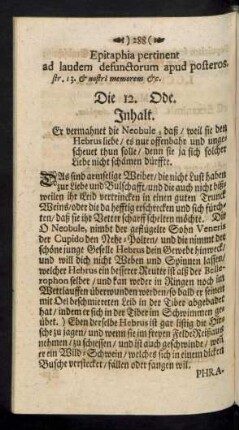 ) 288 (
Epitaphia pertinent
ad laudem defunctorum apud posteros.
str. 13. & nostri memorem &c.
Die 12. Ode.
Inhalt.
Er vermahnet die Neobule / daß / weil sie den
Hebrus liebe / es nur offenbahr und unge-
scheuet thun solle / denn sie ja sich solcher
Liebe nicht schämen dürffte.
DAs sind armselige Weiber / die nicht Lust haben
zur Liebe und Bulschafft / und die auch nicht biß-
weilen ihr Leid vertrincken in einen guten Trunck
Weins / oder die da hefftig erschrecken und sich fürch-
ten / daß sie ihr Vetter scharff schelten möchte. Dir
O Neobule, nimbt der geflügelte Sohn Veneris
der Cupido den Nehe-Polten / und die nimmt der
schöne junge Geselle Hebrus dein Gewebe hinweck /
und will dich nicht Weben und Spinnen lassen /
welcher Hebrus ein besserer Reuter ist alß der Belle-
rophon selber / und kan weder in Ringen noch im
Wettlauffen überwunden werden / so bald er seinen
mit Oel beschmiereten Leib in der Tiber abgebadet
hat / indem er sich in der Tiber im Schwimmen ge-
übet. ) Eben derselbe Hebrus ist gar listig die Hir-
sche zu jagen / und wenn sie im freyen Felde Reißaus
nehmen / zu schiessen / und ist auch geschwinde / weil
er ein Wild-Schwein / welches sich in einem dicken
Busche verstecket / fällen odet fangen wil.
PHRA-